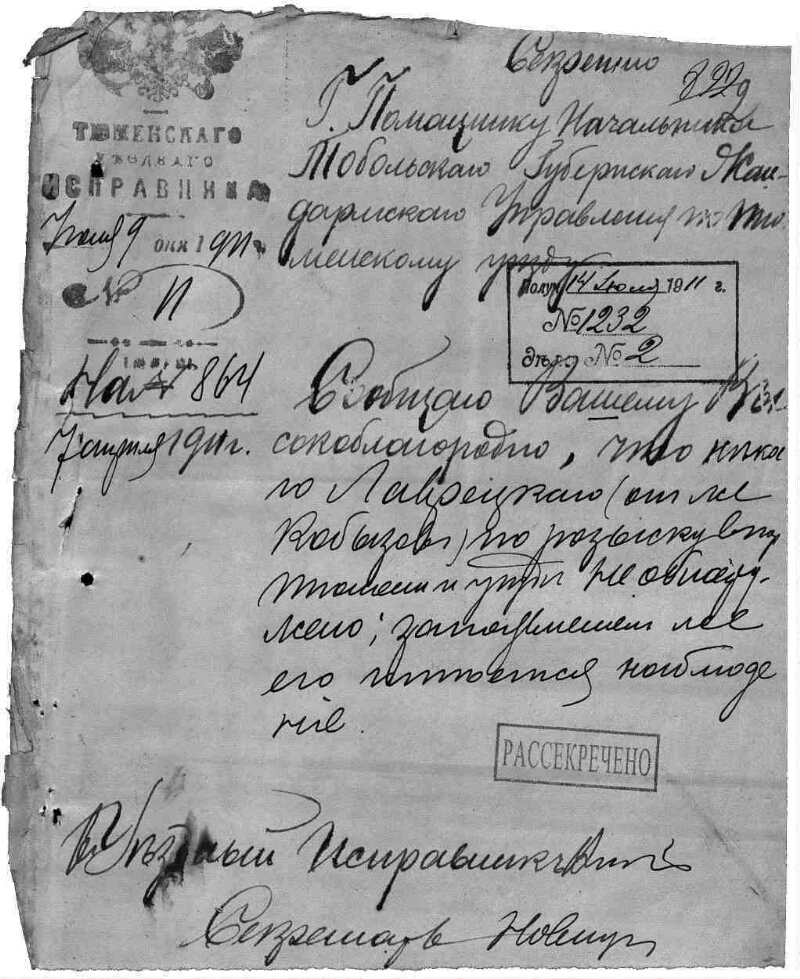 Секретно
ТЮМЕНСКАГО
УѢЗДНАГО
ИСПРАВНИКА
Июля 9 дня 1911 г.
№ 11
На № 864
7 апреля 1911 г.
Г. Помащнику Начальника
Тобольскаго Губернскаго Жан-
дармскаго Управления по Тю-
менскому уезду
Получ. 14 Июля 1911 г.
№ 1232
Дѣло № 2
Сообщаю Вашему Вы
сокоблагородию, что
го Лаврецкаго (он же
Кобызовъ) по розыску
Тюмени и не обнару-
жено; за же
его наблюде
ние.
РАССЕКРЕЧЕНО
Уѣздный Исправникъ
Секретарь